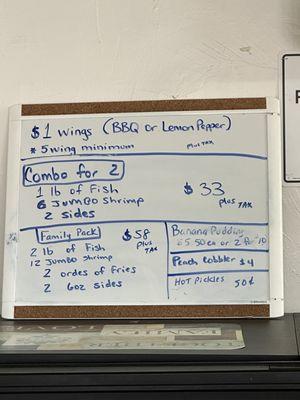 $1 wings (BBQ or Lemon Pepper)
* 5 wing minimum plus TAX
Combo for 2
1 lb of Fish
6 Jumbo Shrimp
2 sides
$33
plus TAX
Family Pack
$58
plus TAX
2 lb of Fish
12 Jumbo Shrimp
2 ordes of fries
2 6oz sides
Banana Pudding
$5.50 ea or 2 for $10
Peach Cobbler $4
HOT Pickles 50¢